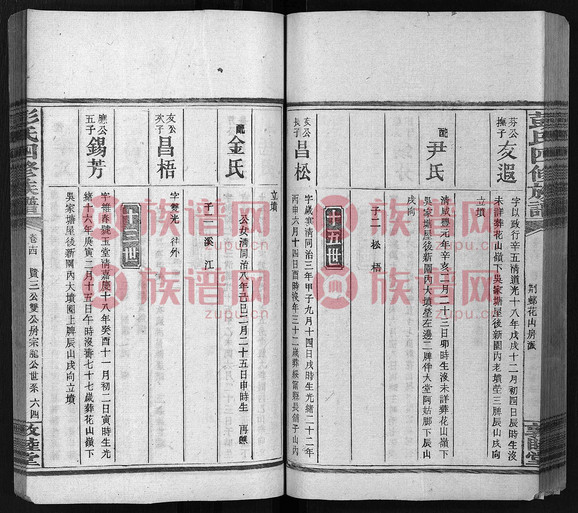 彭氏四修族譜
荆鄉花山房派
敦睦堂
芬公撫子
友遐
字以政行辛五清道光十八年戊戌十二月初四日寅時生沒
未詳葬花山嶺下吳家塘屋後新園內老墳塋三牌辰山戌向
立墳
配
尹氏
清咸豐元年辛亥二月二十三日卯時生沒未詳葬花山嶺下
吳家塘屋後新園內大墳塋左邊二牌伴大堂阿姑脚下辰山
戌向
子二 松 梧
十五世
亥公長子
昌松
字歲寒清同治三年甲子九月十四日戌時生光緒二十二年
丙申六月十四日酉時沒年三十二歲葬綏甯縣長鋪子山內
立墳
配
金氏
公女清同治八年己巳二月二十五日申時生 再醮
子一 溪江
亥公次子
昌梧
字 光 往外
十三世
應公五子
錫芳
字維 號玉堂清嘉慶十八年癸酉十一月初二日寅時生光
緒十六年庚寅二月十五日午時沒壽七十七歲葬花山嶺下
吳家塘屋後新園內大墳園上牌辰山戌向立墳
彭氏四修族譜
卷十四 贊三公雙公房宗龍公世系 六四
敦睦堂
族谱网
zupu.cn
族谱网
zupu.cn
族谱网
zupu.cn
族谱网
zupu.cn